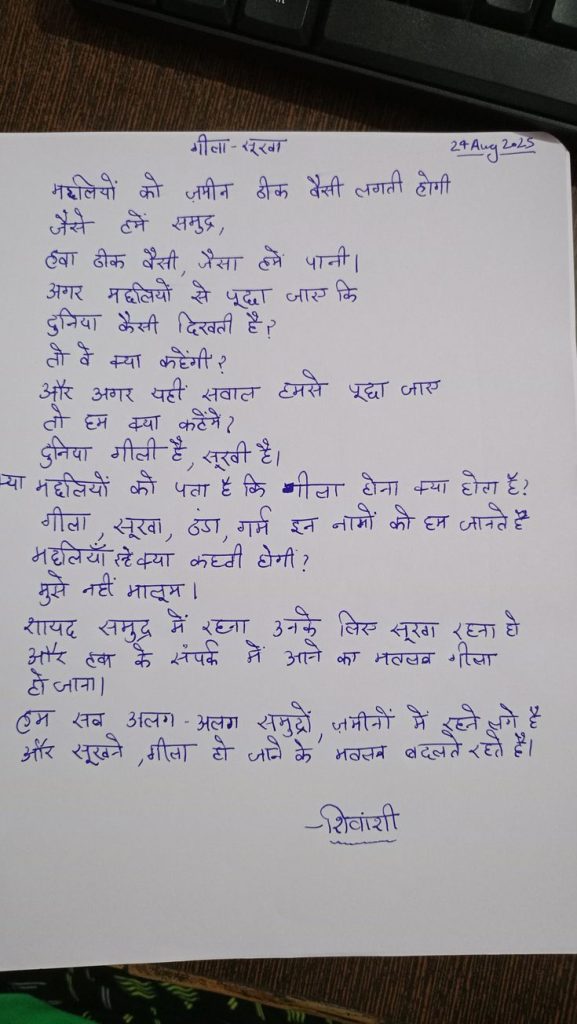 गीला-सूखा
24 Aug 2025
मछलियों को ज़मीन ठीक वैसी लगती होगी
जैसे हमें समुद्र,
हवा ठीक वैसी, जैसा हमें पानी।
अगर मछलियों से पूछा जाए कि
दुनिया कैसी दिखती है?
तो वे क्या कहेंगी?
और अगर यही सवाल हमसे पूछा जाए
तो हम क्या कहेंगे?
दुनिया गीली है, सूखी है।
क्या मछलियों को पता है कि गीला होना क्या होता है?
गीला, सूखा, ठंडा, गर्म इन नामों को हम जानते है
मछलियाँ इन्हें क्या कहती होगी?
मुझे नहीं मालूम।
शायद समुद्र में रहना उनके लिए सूखा रहना हो
और हवा के संपर्क में आने का मतलब गीला
हो जाना।
हम सब अलग-अलग समुद्रों, ज़मीनों में रहने लगे है
और सूखने, गीला हो जाने के मतलब बदलते रहते है।
-शिवांशी